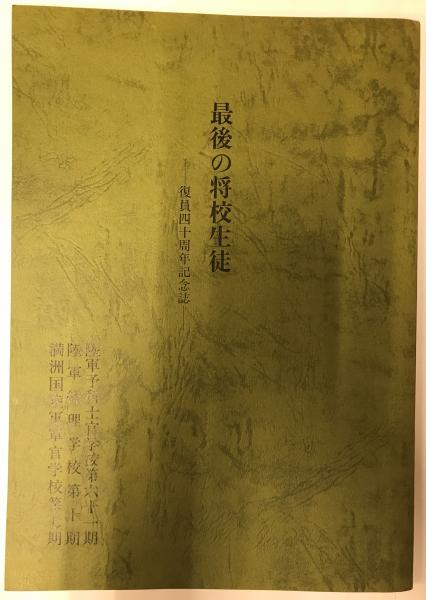 最後の将校生徒
―復員四十周年記念誌―
陸軍予科士官学校第六十一期
陸軍経理学校第十期
満洲国陸軍軍官学校第七期